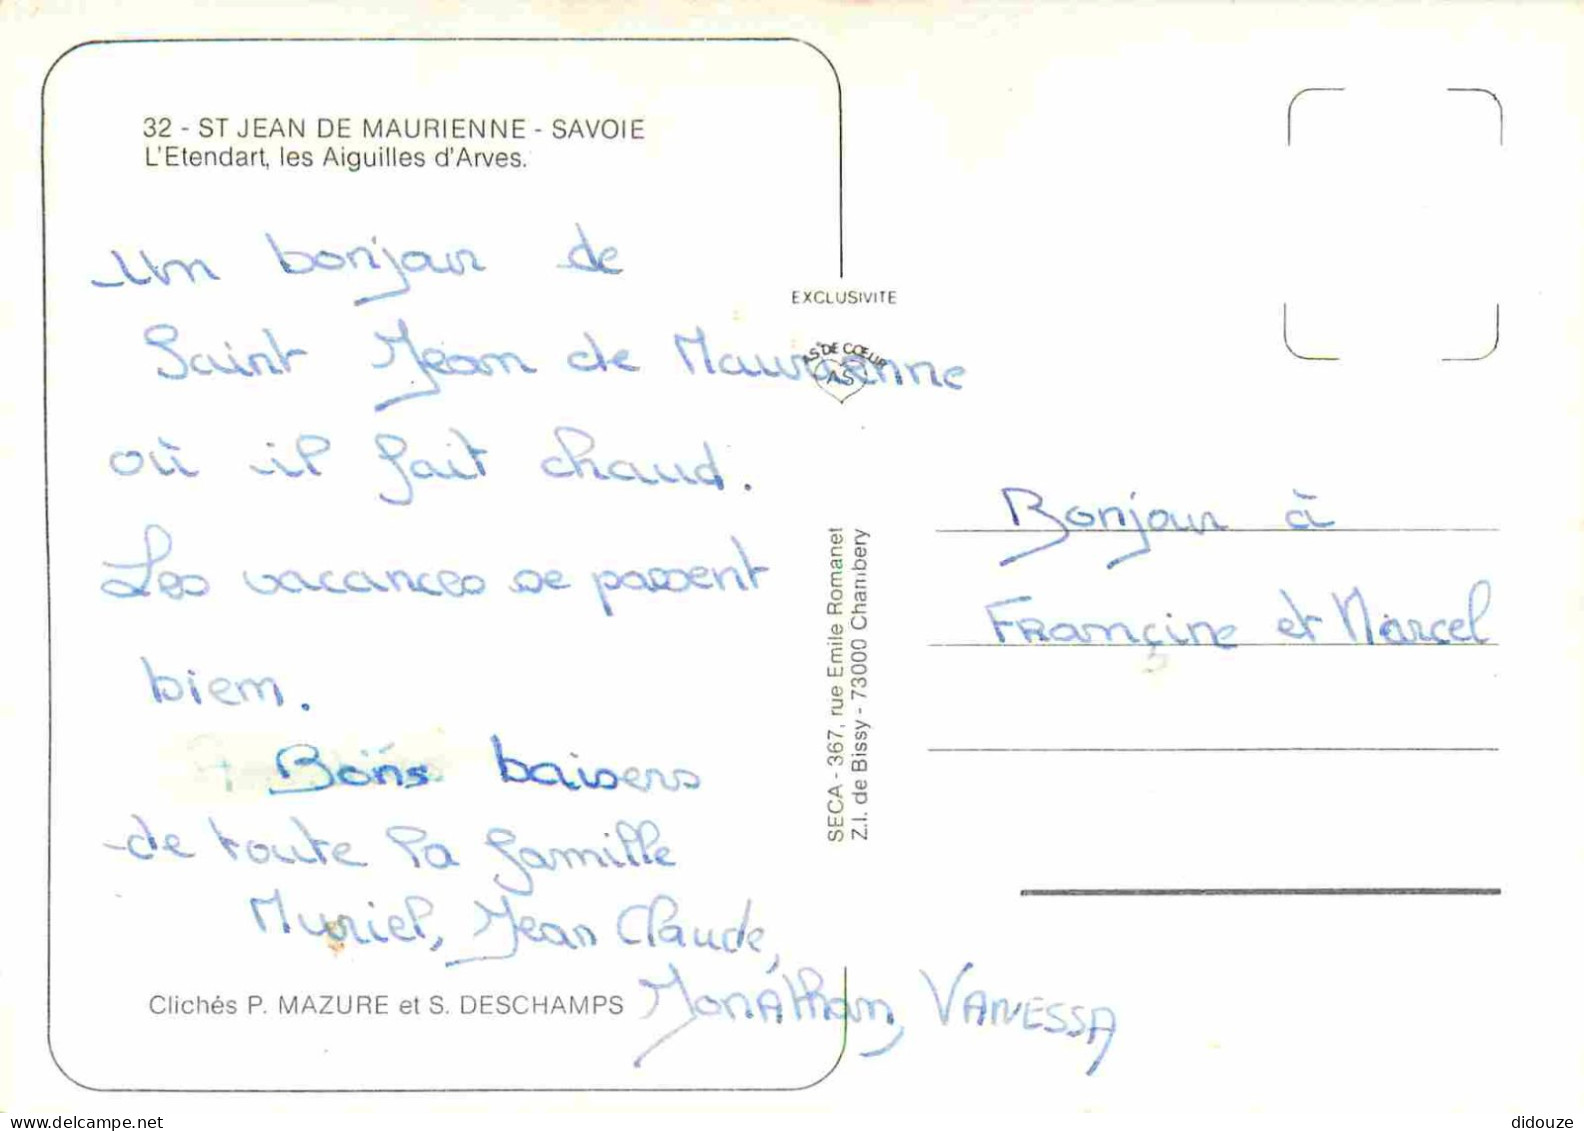 32 - ST JEAN DE MAURIENNE - SAVOIE
L'Etendart, les Aiguilles d'Arves.
Un bonjour de
Saint Jean de Maurienne
où il fait chaud.
Les vacances se passent
bien.
Bons baisers
de toute la famille
Muriel, Jean Claude,
Jonathan, VANESSA
Clichés P. MAZURE et S. DESCHAMPS
EXCLUSIVITE
AS DE CŒUR
AS
SECA - 367, rue Emile Romanet
Z.I. de Bissy - 73000 Chambery
Bonjour à
Françine et Marcel
www.delcampe.net
didouze